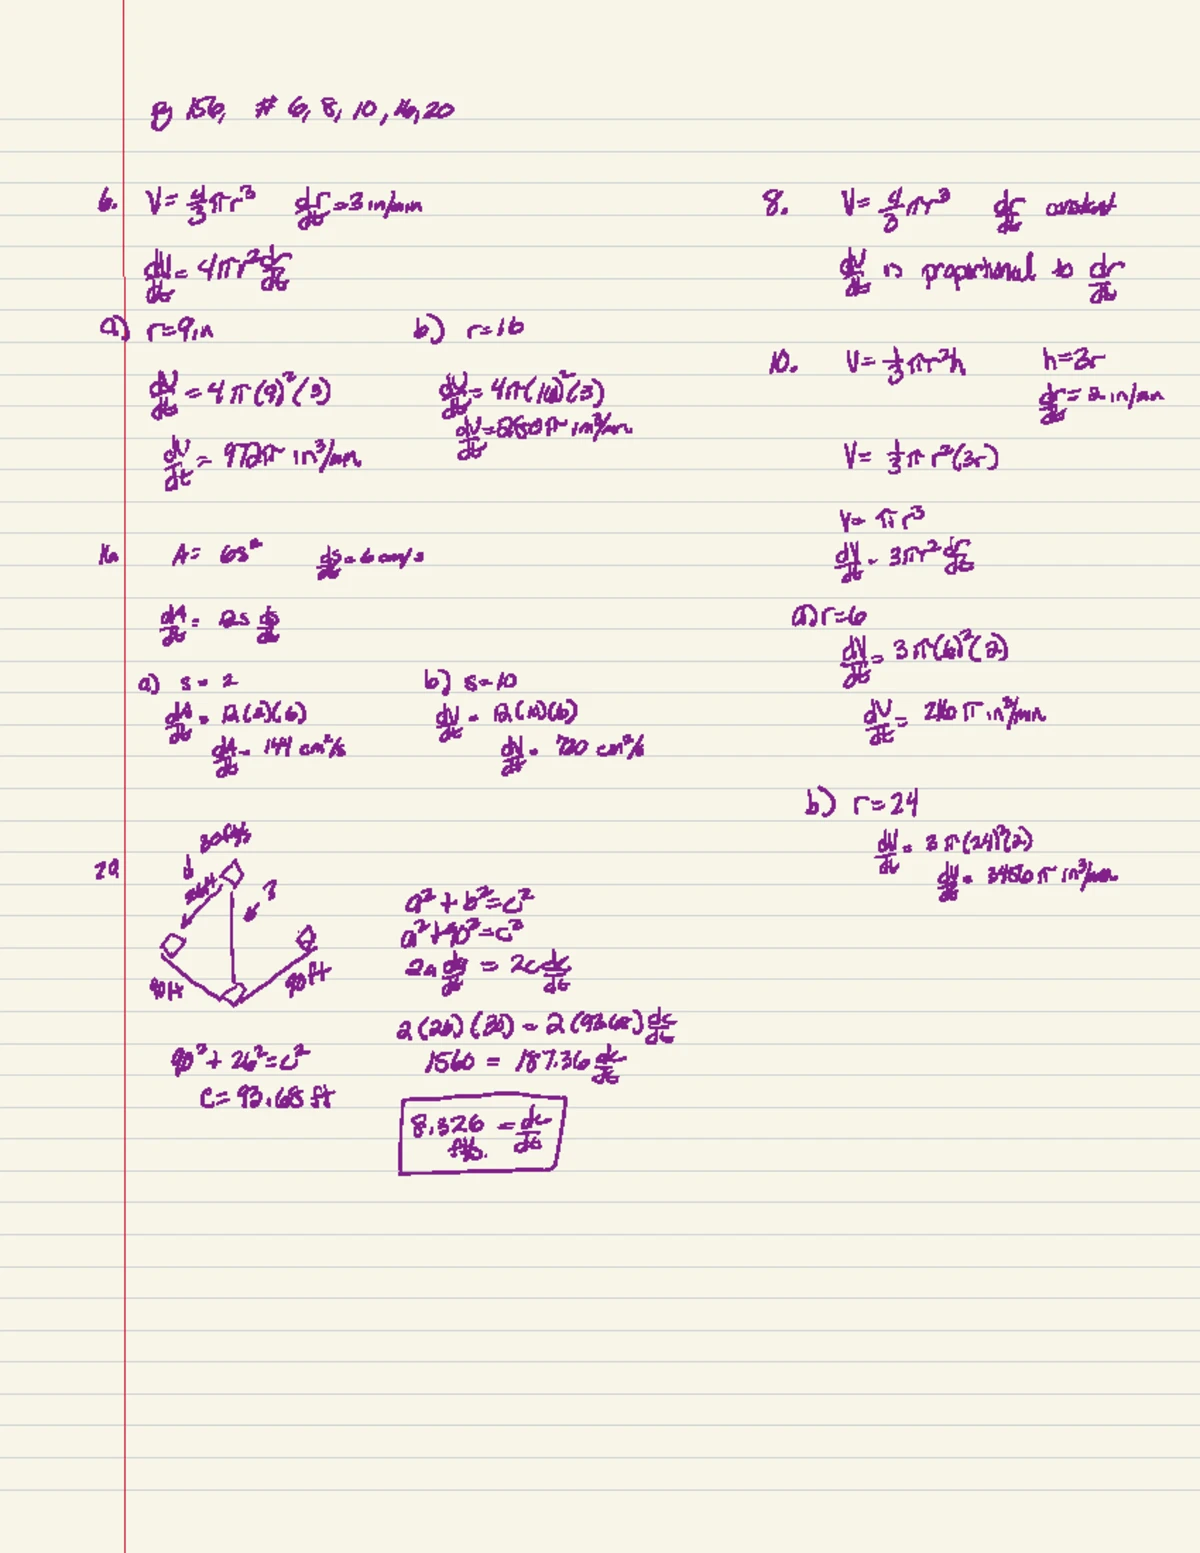 Pg 156, # 6, 8, 10, 16, 20
6. V = 4/3 πr³   dr/dt = 3 in/min
dV/dt = 4πr² dr/dt
a) r = 9 in   b) r = 16
dV/dt = 4π(9)²(3)   dV/dt = 4π(16)²(3)
dV/dt = 972π in³/min   dV/dt = π in³/min
16. A = 6s²   ds/dt = 6 cm/s
dA/dt = 12s ds/dt
a) s = 2   b) s = 10
dA/dt = 12(2)(6)   dV/dt = 12(10)(6)
dA/dt = 144 cm²/s   dV/dt = 720 cm²/s
20
30 ft/s
26 ft
?
90 ft
90 ft
90² + 26² = c²
c = 93.68 ft
a² + b² = c²
a² + 90² = c²
2a da/dt = 2c dc/dt
2(26)(30) = 2(93.68) dc/dt
1560 = 187.36 dc/dt
8.326 = dc/dt
ft/s.
8. V = 4/3 πr³   dr/dt constant
dV/dt is proportional to dr/dt
10. V = 1/3 πr²h   h = 3r
dr/dt = 2 in/min
V = 1/3 π r²(3r)
V = πr³
dV/dt = 3πr² dr/dt
a) r = 6
dV/dt = 3π(6)²(2)
dV/dt = 216π in³/min
b) r = 24
dV/dt = 3π(24)²(2)
dV/dt = 3456π in³/min